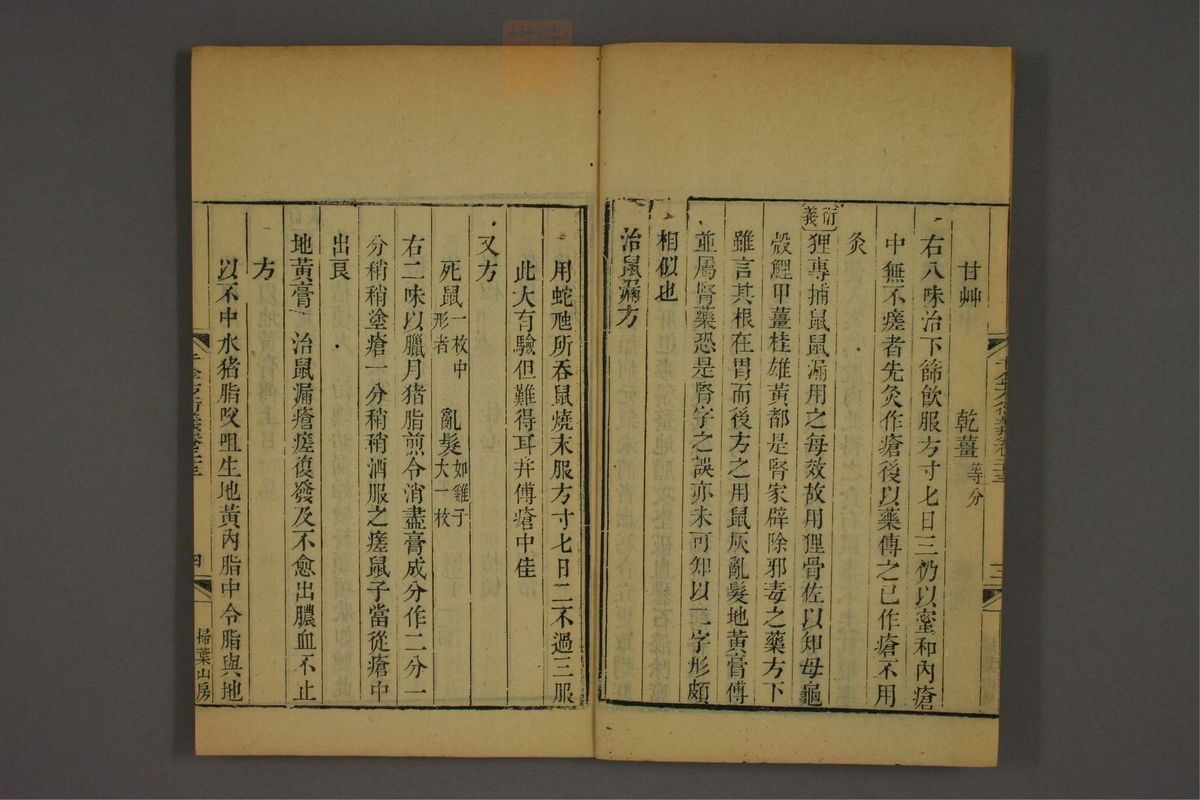 甘艸　乾薑等分
右八味治下篩飲服方寸匕日三仍以蜜和內瘡
中無不瘥者先灸作瘡後以藥傅之已作瘡不用
灸
衍義 狸專捕鼠鼠漏用之每效故用狸骨佐以知母龜
殼鯉甲薑桂雄黃都是腎家辟除邪毒之藥方下
雖言其根在胃而後方之用鼠灰亂髮地黃膏傅
並屬腎藥恐是腎字之誤亦未可知以二字形頗
相似也
治鼠漏方
用蛇虺所吞鼠燒末服方寸匕日二不過三服
此大有驗但難得耳并傅瘡中佳
又方
死鼠一枚中形者　亂髮如雞子大一枚
右二味以臘月猪脂煎令消盡膏成分作二分一
分稍稍塗瘡一分稍稍酒服之瘥鼠子當從瘡中
出良
地黃膏　治鼠漏瘡瘥復發及不愈出膿血不止
方
以不中水猪脂㕮咀生地黃內脂中令脂與地
四
掃葉山房